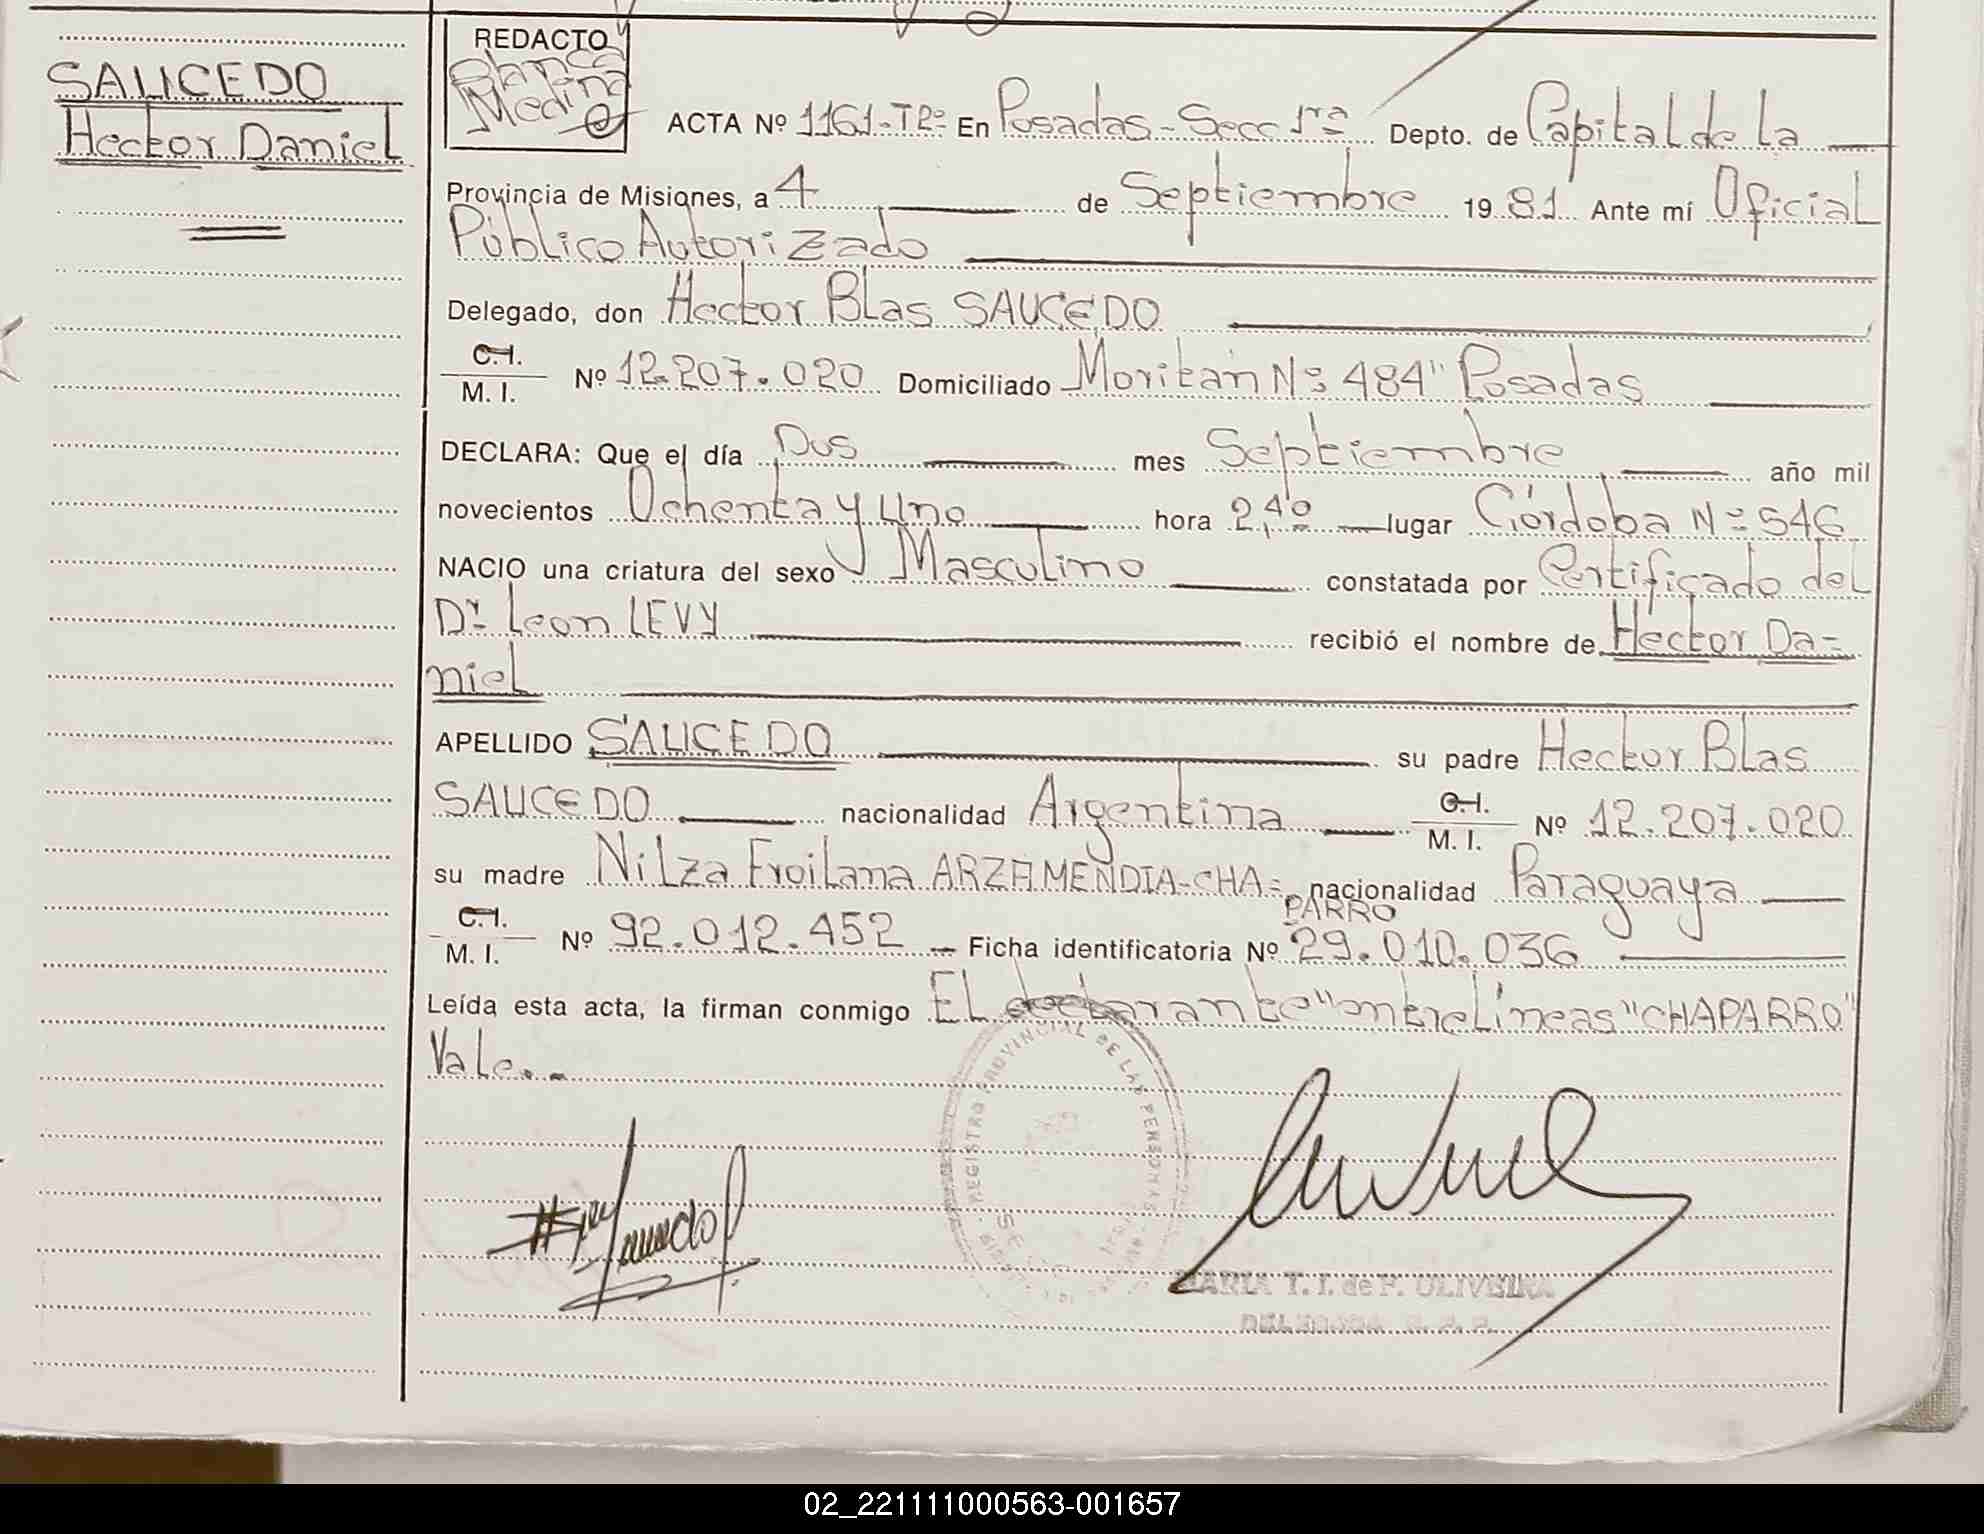 SAUCEDO
Hector Daniel
REDACTO
Blanca
Medina
ACTA Nº 1161-Tº- En Posadas-Secc 1ra Depto. de Capital de la
Provincia de Misiones, a 4 de Septiembre 1981 Ante mí Oficial
Público Autorizado
Delegado, don Hector Blas SAUCEDO
C.I.
M. I. Nº 12.207.020 Domiciliado Moritán Nº 484" Posadas
DECLARA: Que el día Dos mes Septiembre año mil
novecientos Ochenta y Uno hora 2,40 lugar Córdoba Nº 546
NACIO una criatura del sexo Masculino constatada por Certificado del
Dr Leon LEVY recibió el nombre de Hector Da-
niel
APELLIDO SAUCEDO su padre Hector Blas
SAUCEDO nacionalidad Argentina C.I. M. I. Nº 12.207.020
su madre Nilza Froilana ARZAMENDIA-CHA= nacionalidad Paraguaya
PARRO
C.I.
M. I. Nº 92.012.452 Ficha identificatoria Nº 29.010.036
Leída esta acta, la firman conmigo EL declarante "entrelíneas "CHAPARRO"
Vale.-
REGISTRO PROVINCIAL DE LAS PERSONAS
MARIA T. I. de P. OLIVEIRA
DELEGADA
02_221111000563-001657